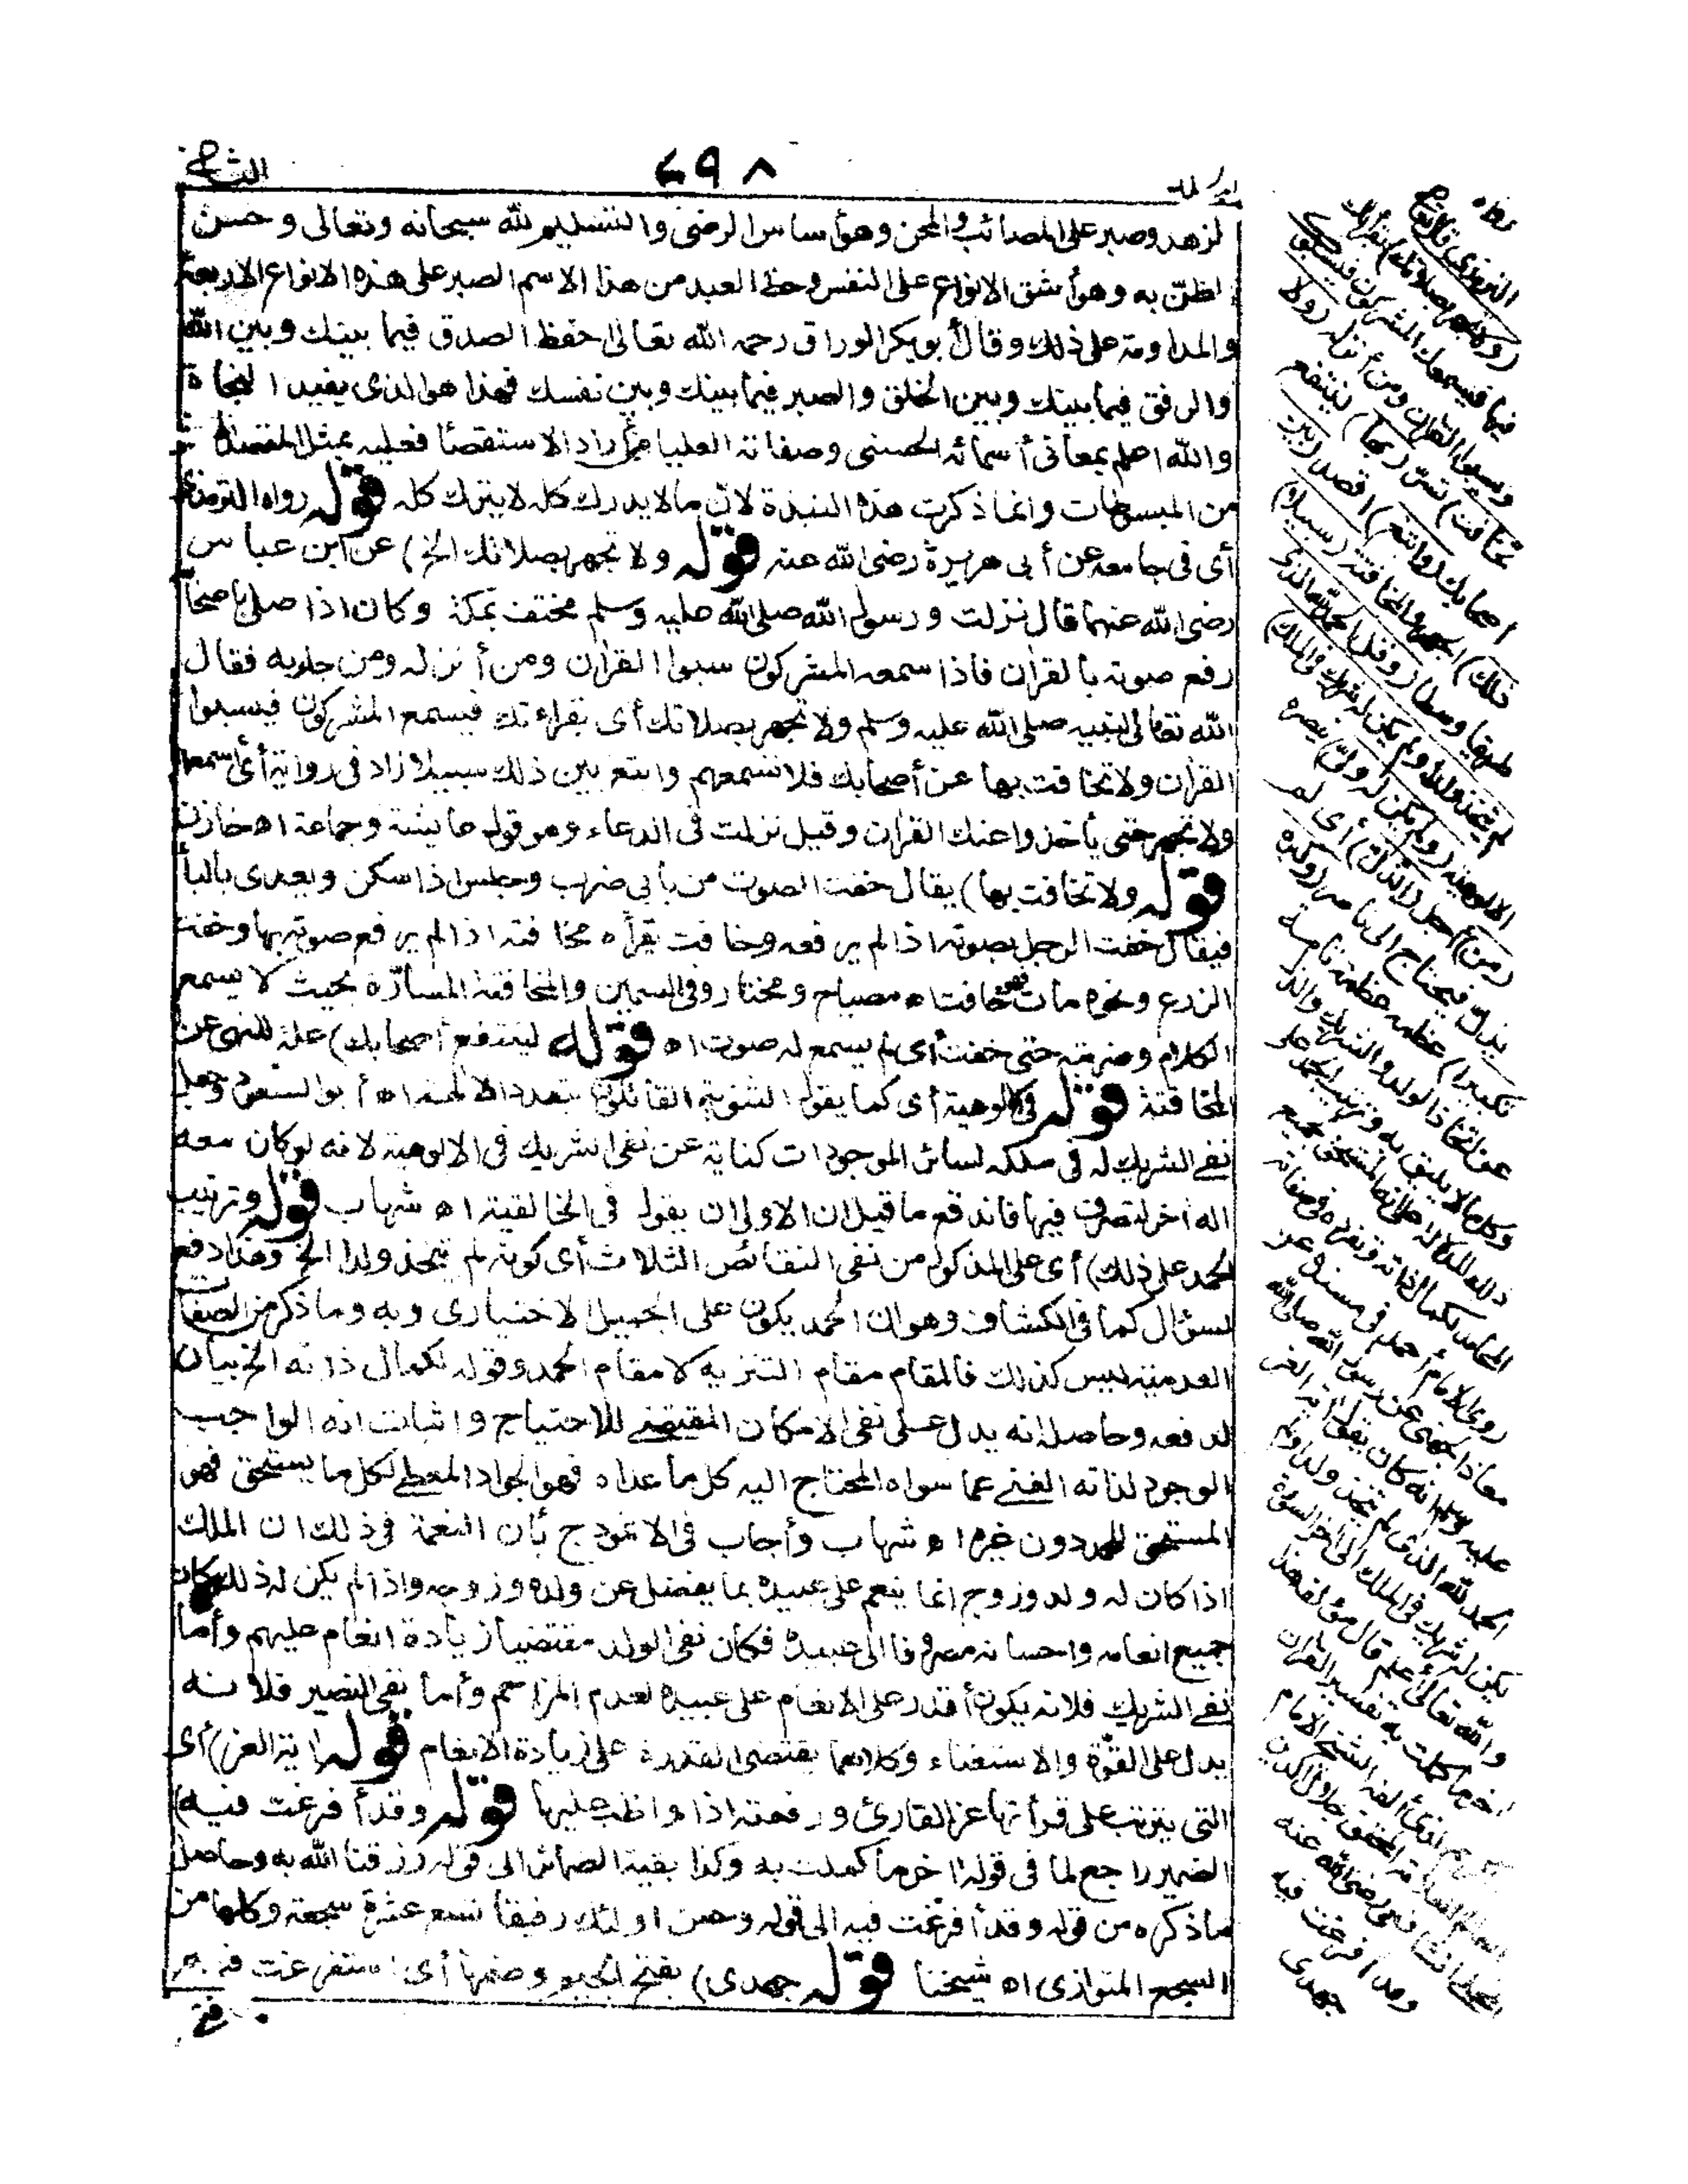 ٦٩٨
لزهد وصبر على المصائب والمحن وهو أساس الرضى والتسليم لله سبحانه وتعالى وحسن
لظنّ به وهو أشق الانواع على النفس وحظ العبد من هذا الاسم الصبر على هذه الانواع الاربعة
والمداومة على ذلك وقال أبو بكر الوراق رحمه الله تعالى احفظ الصدق فيما بينك وبين الله
والرفق فيما بينك وبين الخلق والصبر فيما بينك وبين نفسك فهذا هو الذى يفيد النجاة
والله اعلم بمعانى أسمائه الحسنى وصفاته العليا فمن راد الاستقصا فعليه بمثل المقصد
من المبسوطات وانما ذكرت هذه النبذة لان ما لا يدرك كله لا يترك كله قوله رواه الترمذى
أى فى جامعه عن أبى هريرة رضى الله عنه قوله ولا تجهر بصلاتك الخ) عن ابن عباس
رضى الله عنهما قال نزلت ورسول الله صلى الله عليه وسلم مختف بمكة وكان اذا صلى باصحابه
رفع صوته بالقران فاذا سمعه المشركون سبوا القران ومن أنزله ومن جاء به فقال
الله تعالى لنبيه صلى الله عليه وسلم ولا تجهر بصلاتك أى بقراءتك فيسمع المشركون فيسبوا
القران ولا تخافت بها عن أصحابك فلا تسمعهم وابتغ بين ذلك سبيلا زاد فى رواية أى أسمعهم
ولا تجهر حتى يأخذوا عنك القران وقيل نزلت فى الدعاء وهو قول عائشة وجماعة اه خازن
قوله ولا تخافت بها) يقال خفت الصوت من بابى ضرب وجلس اذا سكن ويعدى بالباء
فيقال خفت الرجل بصوته اذا لم يرفعه وخافت بقرأه مخافتة اذا لم يرفع صوته بها وخفت
الزرع ونحوه مات فهو خافت اه مصباح ومختار وفى السمين والمخافتة المسارّة بحيث لا يسمع
الكلام وضربته حتى خفت أى لم يسمع له صوت اه قوله لينتفع أصحابك) علة للنهى عن
المخافتة قوله فى الالوهية أى كما يقول الثنوية القائلون بتعدد الالهة اه أبو السعود وجعل
نفى الشريك له فى ملكه لسائر الموجودات كناية عن نفى الشريك فى الالوهية لانه لو كان معه
اله اخر لتصرف فيها فاندفع ما قيل ان الاولى ان يقول فى الخالقية اه شهاب قوله وترتيب
الحمد على ذلك) أى على المذكور من نفى النقائص الثلاث أى كونه لم يتخذ ولدا الخ وهذا دفع
لسؤال كما فى الكشاف وهو ان الحمد يكون على الجميل الاختيارى وبه وما ذكر من الصفات
العدمية ليس كذلك فالمقام مقام التنزيه لا مقام الحمد وقوله لكمال ذاته الخ بيان
لدفعه وحاصله انه يدل على نفى الامكان المقتضى للاحتياج واثبات انه الواجب
الوجود لذاته الغنى عما سواه المحتاج اليه كل ما عداه فهو الجواد المعطى لكل ما يستحق فهو
المستحق للحمد دون غيره اه شهاب وأجاب فى الانموذج بأن النعمة فى ذلك ان الملك
اذا كان له ولد وزوج انما ينعم على عبيده بما يفضل عن ولده وزوجه واذا لم يكن له ذلك كان
جميع انعامه واحسانه مصروفا الى عبيده فكان نفى الولد مقتضيا زيادة انعام عليهم وأما
نفى الشريك فلانه يكون أقدر على الانعام على عبيده لعدم المزاحم وأما نفى النصير فلانه
يدل على القوّة والاستغناء وكلاهما يقتضى القدرة على زيادة الانعام قوله اية العز) أى
التى يترتب على قرأتها عز القارئ ورفعته اذا واظب عليها قوله وقد أفرغت فيه)
الضمير راجع لما فى قوله اخر ما كملت به وكذا بقية الضمائر الى قوله رزقنا الله به وحاصل
ماذكره من قوله وقد أفرغت فيه الى قوله وحسن اولئك رفيقا تسع عشرة سجعة وكلها من
السجع المتوازى اه شيخنا قوله جهدى) بفتح الجيم وضمها أى استفرغت فيه
رواه
الترمذى قال تعالى
(ولا تجهر بصلاتك) بقراءتك
فيها فيسمعك المشركون فيسبوك
ويسبوا القران ومن أنزله (ولا
تخافت) تسرّ (بها) لينتفع
أصحابك (وابتغ) اقصد (بين
ذلك) الجهر والمخافتة (سبيلا)
طريقا وسطا (وقل الحمد لله الذى
لم يتخذ ولدا ولم يكن له شريك فى الملك)
الالوهية (ولم يكن له ولىّ) ينصره
(من) أجل (الذل) أى لم
يذل فيحتاج الى ناصر (وكبره
تكبيرا) عظمه عظمة تامة
عن اتخاذ الولد والشريك والذل
وكل ما لا يليق به وترتيب الحمد على
ذلك للدلالة على انه المستحق لجميع
المحامد لكمال ذاته وتفرده فى صفاته
روى الامام أحمد فى مسنده عن
معاذ الجهنى عن رسول الله صلى الله
عليه وسلم انه كان يقول اية العز
الحمد لله الذى لم يتخذ ولدا ولم
يكن له شريك فى الملك الى اخر السورة
والله تعالى أعلم قال مؤلفه هذا
اخر ما كملت به تفسير القران
الذى ألفه الشيخ الامام
المحقق جلال الدين
رضى الله عنه
وقد أفرغت فيه
جهدى